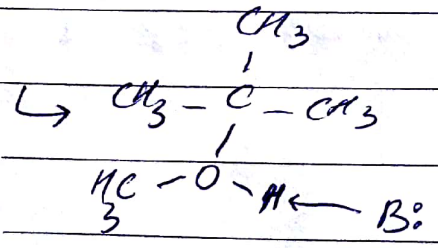 CH3
CH3 - C - CH3
H3C - O - H ← B: